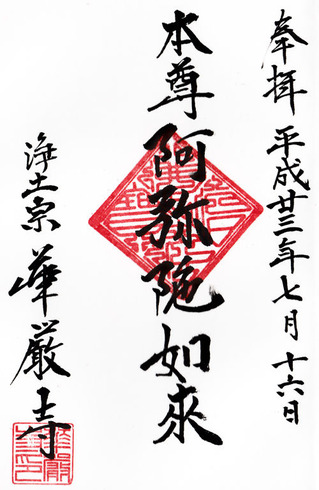 奉拝 平成廿三年七月十六日
本尊 阿弥陀如来
浄土宗 華厳寺